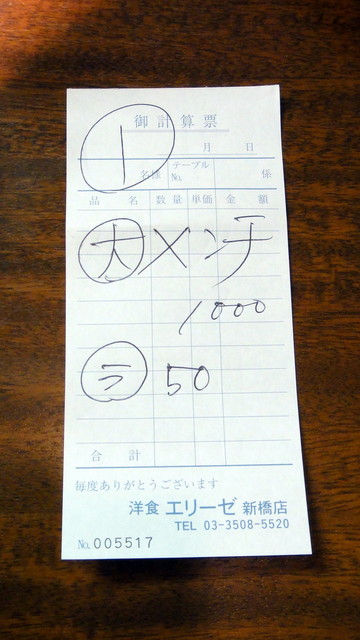 御計算票
1
月 日
名様 テーブルNo. 係
品名 数量 単価 金額
大 メンチ
1000
ラ 50
合計
毎度ありがとうございます
洋食 エリーゼ 新橋店
TEL 03-3508-5520
No. 005517